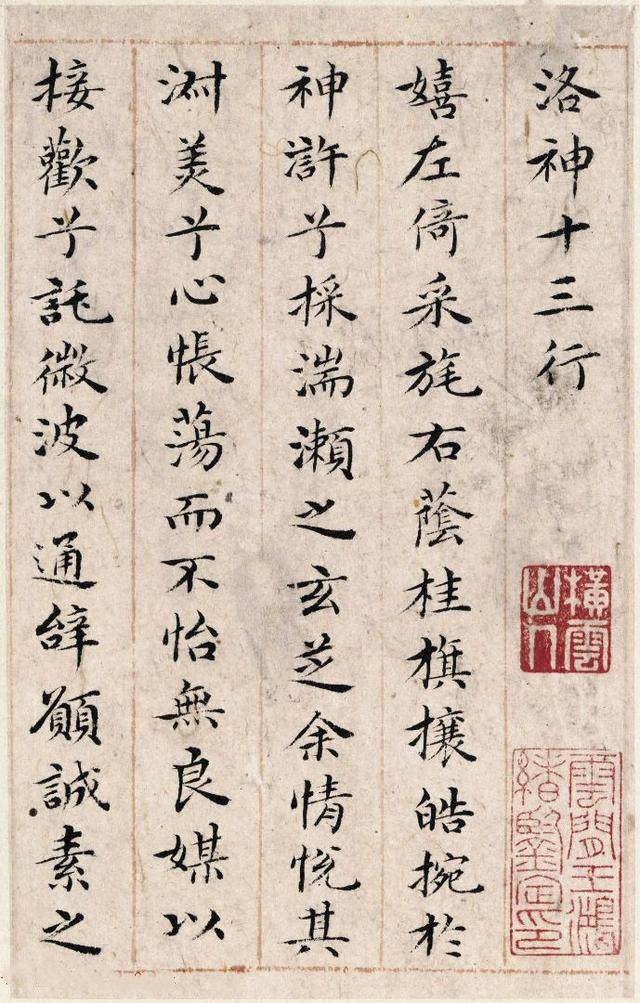 洛神十三行
嬉左倚采旄右蔭桂旗攘皓捥於
神滸兮採湍瀨之玄芝余情悅其
淑美兮心帳蕩而不怡無良媒以
接歡兮託微波以通辭願誠素之
橫雲山人
雲間王鴻緒鑒定印